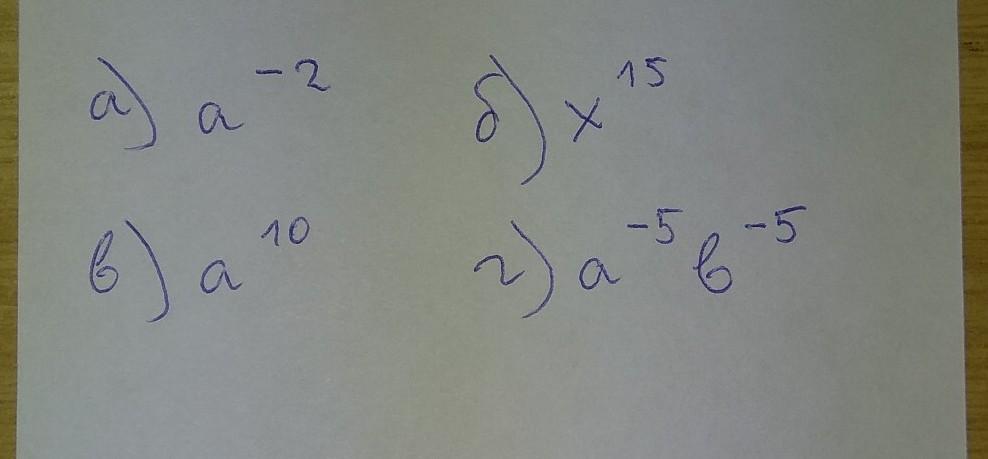 а) a⁻² б) x¹⁵
в) a¹⁰ г) a⁻⁵ b⁻⁵